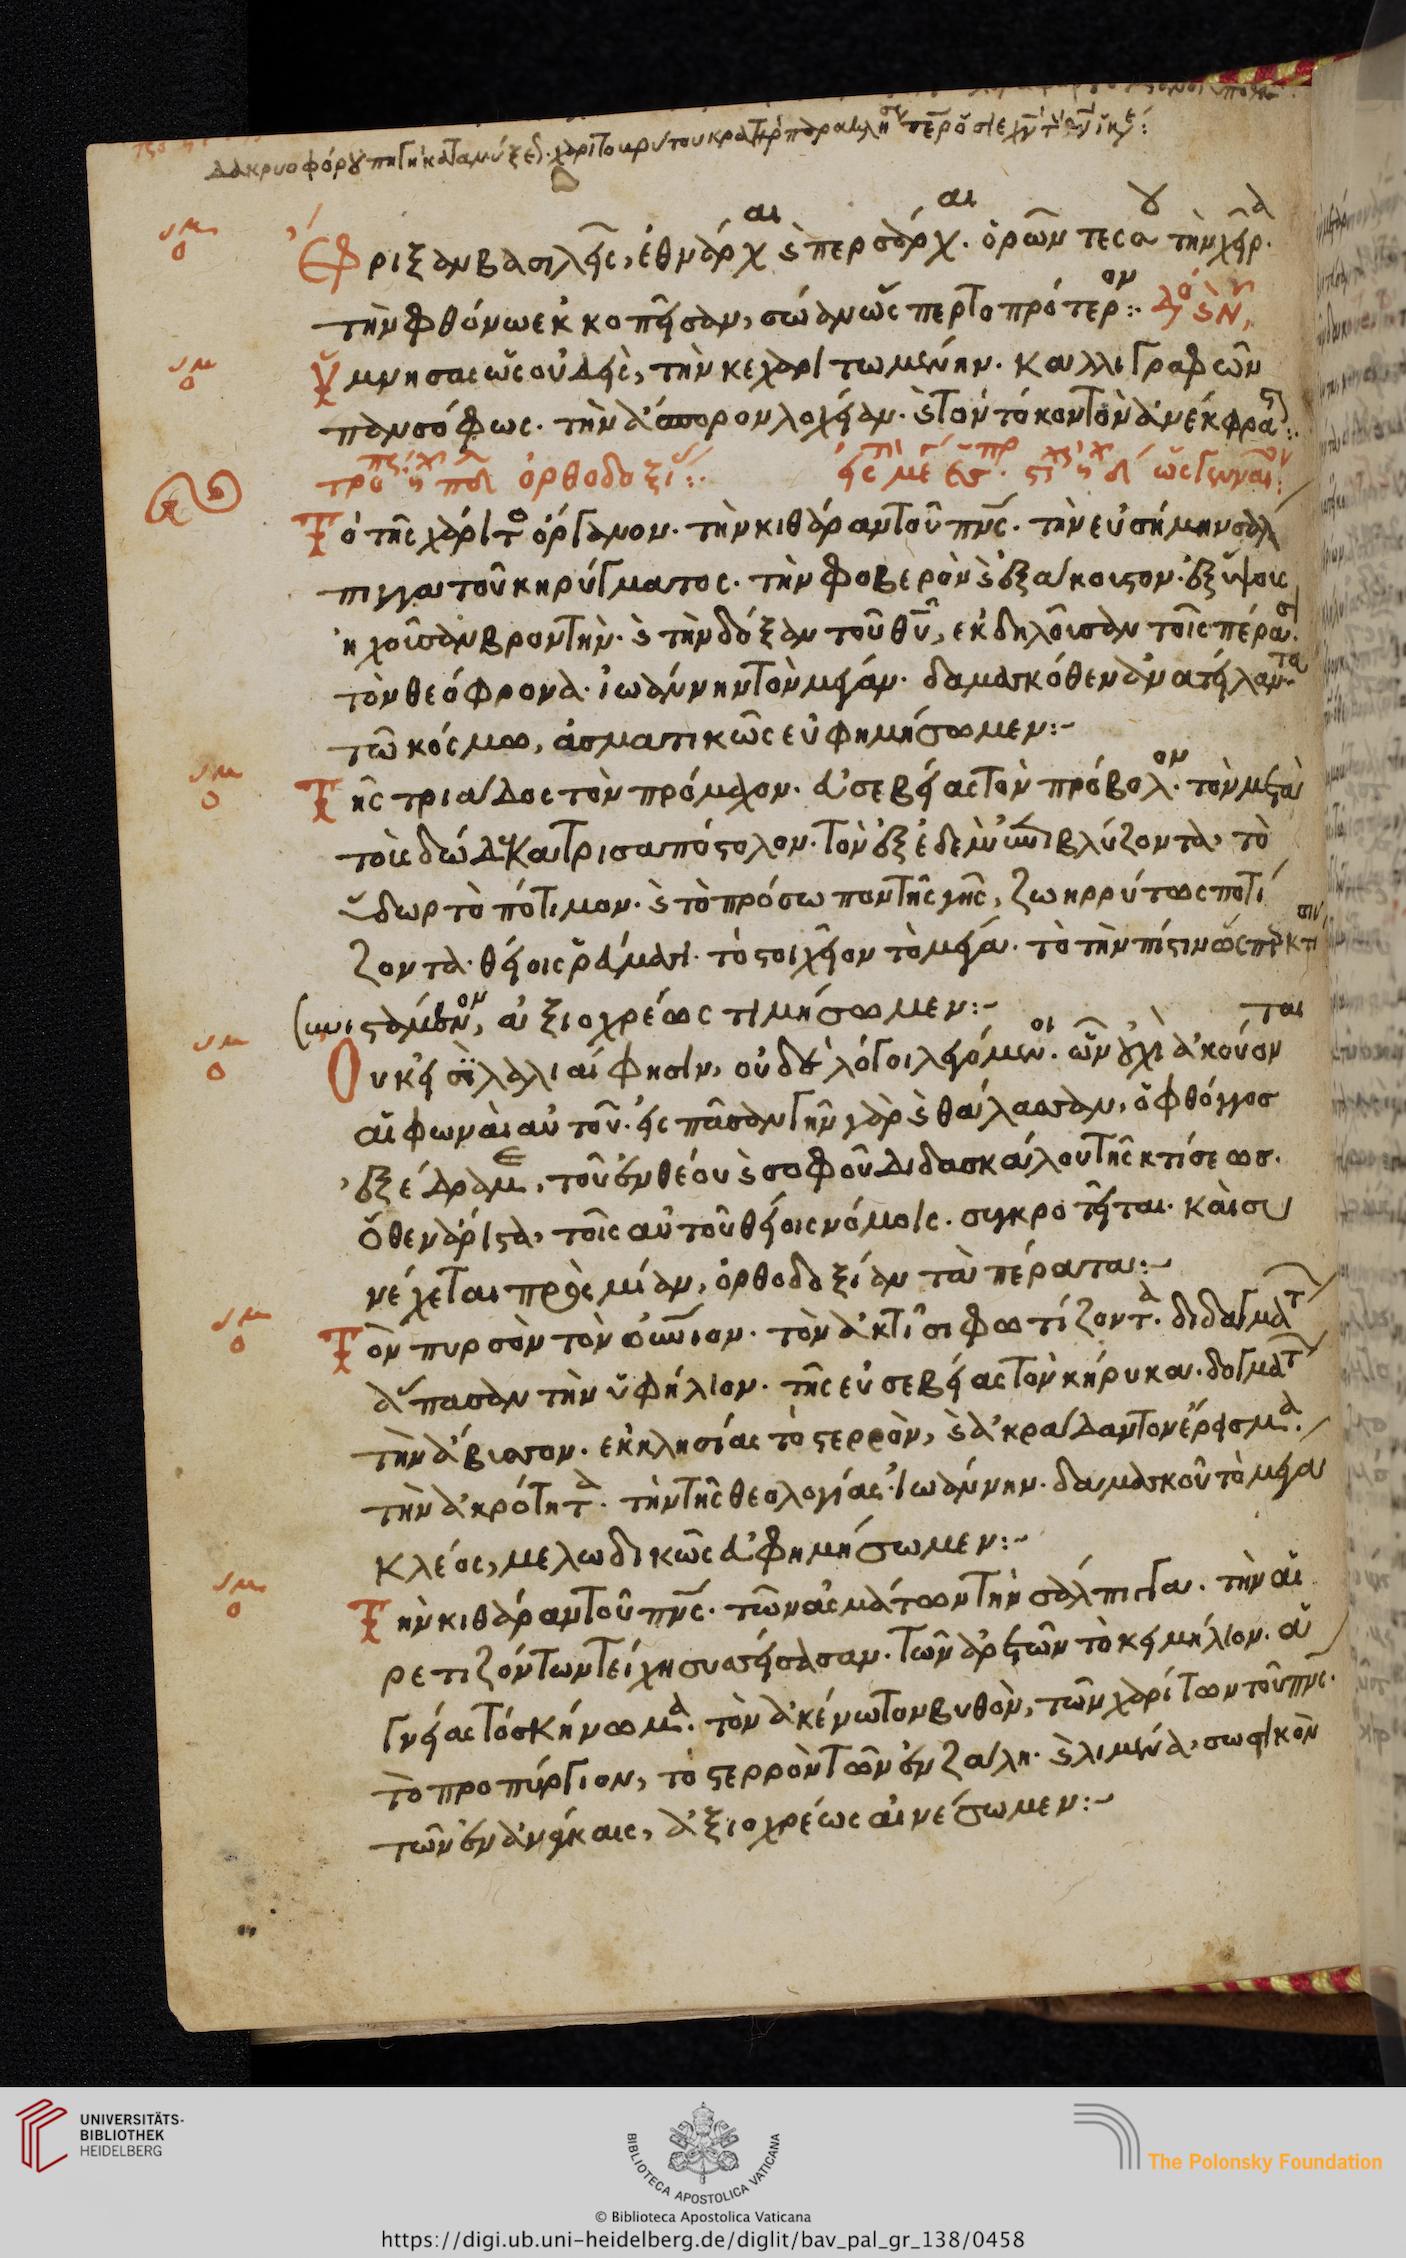 Ἔφριξαν βασιλεῖς, ἐθνάρχαι ϗ περσάρχαι. ὁρῶντές σου τὴν χεῖρα.
τὴν φθόνω ἐκκοπεῖσαν, σώαν ὥσπερ τὸ πρότερον:·
Ὕμνησας ὡς οὐδεὶς, τὴν κεχαριτωμένην. καλλιγραφῶν
πανσόφως. τὴν ἄσπορον λοχείαν. ϗ τὸν τόκον τὸν ἀνέκφρασ:·
ὀρθοδοξί:·
Τὸ τῆς χάριτος ὄργανον. τὴν κιθάραν τοῦ πνς. τὴν εὔσημην σάλ
πιγγα τοῦ κηρύγματος. τὴν φοβερὸν ϗ ἐξάκουστον. ἐξ ὕψους
ἠχοῦσαν βροντὴν. ϗ τὴν δόξαν τοῦ θυ, ἐκδηλοῦσαν τοῖς πέρασι.
τὸν θεόφρονα. ἰωάννην τὸν μέγαν. δαμασκόθεν ἀνατείλαντα
τῶ κόσμω, ἀσματικῶς εὐφημήσωμεν:~
Τῆς τριάδος τὸν πρόμαχον. ἀσεβείας τὸν πρόβολον. τὸν μετὰ
τοὺς δώδεκα τρισαπόστολον. τὸν ἐξ ἐδὲμ βλύζοντα, τὸ
ὕδωρ τὸ πότιμον. ϗ τὸ πρόσωπον τῆς γῆς, ζωηρρύτως ποτί
ζοντα. θείοις νάμασι. τὸ στοιχεῖον τὸ μέγα. τὸ τὴν πίστιν
ἀξιοχρέως τιμήσωμεν:~
Οὐκ εἰσὶ λαλιαί φησιν, οὐδὲ λόγοι λεγόμενοι. ὧν οὐχὶ ἀκούονται
αἱ φωναὶ αὐτοῦ. εἰς πᾶσαν γῆν γὰρ ϗ θάλασσαν, ὁ φθόγγος
ἐξέδραμε, τοῦ ἐνθέου ϗ σοφοῦ διδασκάλου τῆς κτίσεως.
ὅθεν ἄριστα, τοῖς αὐτοῦ θείοις νόμοις. συγκροτεῖται. καὶ συ
νέχεται πρὸς μίαν, ὀρθοδοξίαν τὰ πέρατα:~
Τὸν πυρσὸν τὸν οὐνιον. τὸν ἀκτῖσι φωτίζοντα. διδαγμάτ
ἅπασαν τὴν ὑφήλιον. τῆς εὐσεβείας τὸν κήρυκα. δογμάτ
τὴν ἄβυσσον. ἐκκλησίας τὸ στερρὸν, ϗ ἀκράδαντον ἔρεισμα.
τὴν ἀκρότητα. τὴν τῆς θεολογίας. ἰωάννην. δαμασκοῦ τὸ μέγα
κλέος, μελωδικῶς εὐφημήσωμεν:~
Τὴν κιθάραν τοῦ πνς. τῶν ἀσμάτων τὴν σάλπιγγα. τὴν αἱ
ρετιζόντων τείχη συσσείσασαν. τῶν ἀρετῶν τὸ κειμήλιον. ἁ
γνείας τὸ σκήνωμα. τὸν ἀκένωτον βυθὸν, τῶν χαρίτων τοῦ πνς.
τὸ προπύργιον, τὸ στερρὸν τῶν ἐν ζάλη. ϗ λιμένα, σωστικὸν
τῶν ἐν ἀνάγκαις, ἀξιοχρέως αἰνέσωμεν:~
UNIVERSITÄTS-
BIBLIOTHEK
HEIDELBERG
BIBLIOTECA APOSTOLICA VATICANA
The Polonsky Foundation
© Biblioteca Apostolica Vaticana
https://digi.ub.uni-heidelberg.de/diglit/bav_pal_gr_138/0458